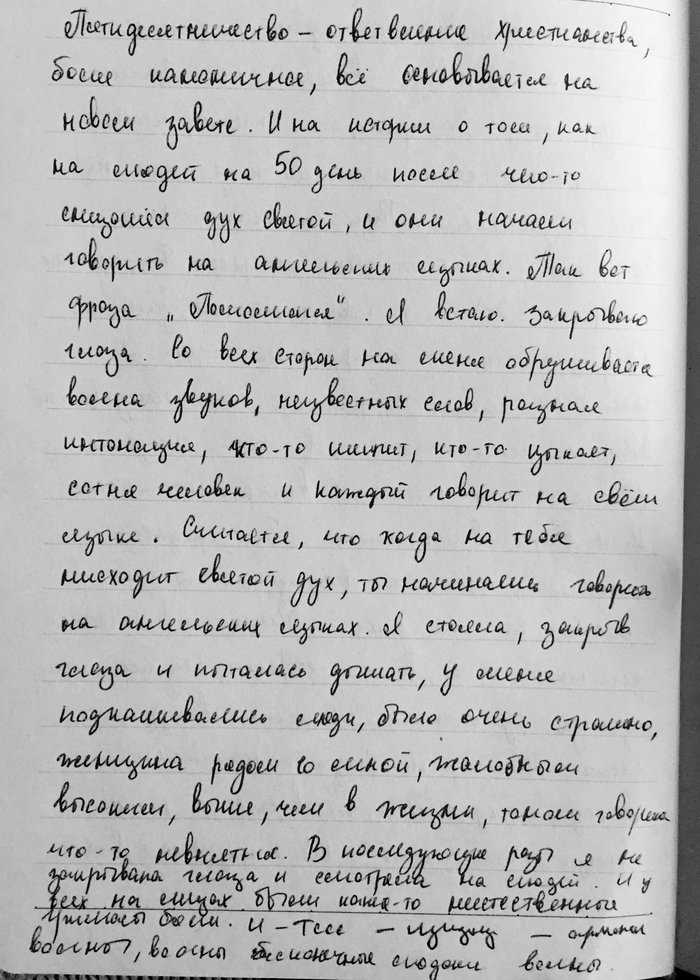 Пятидесятничество – ответвление Христианства,
более каноничное, всё основывается на
новом завете. И на истории о том, как
на людей на 50 день после чего-то
снизошёл дух святой, и они начали
говорить на ангельских языках. Так вот
фраза „Помолимся“. Я встаю. Закрываю
глаза. Со всех сторон на меня обрушиваета
волна звуков, неизвестных слов, разная
интонация, кто-то шипит, кто-то цыкает,
сотня человек и каждый говорит на своём
языке. Считается, что когда на тебя
нисходит святой дух, ты начинаешь говорить
на ангельских языках. Я стояла, закрыв
глаза и пыталась дышать, у меня
подкашивались люди, было очень страшно,
женщина рядом со мной, жалобным
высоким, выше, чем в жизни, тоном говорила
что-то невнятное. В последующие разы я не
закрывала глаза и смотрела на людей. И у
всех на лицах были какие-то неестественные
гримасы боли. И –
волны, волны бесконечные людские волны.